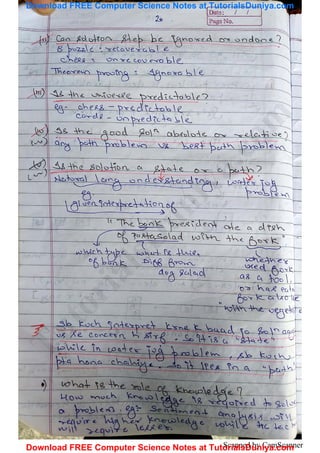 Download FREE Computer Science Notes at TutorialsDuniya.com
20
Date: / /
Page No.
(ii) Can solution step be ignored or undone?
8 puzzle : recoverable
chess : unrecoverable
Theorem proving : Ignorable
(iii) Is the universe predictable?
eg- chess - predictable
cards - unpredictable
(iv) Is the good solⁿ absolute or relative?
any path problem vs best path problem
Is the solution a state or a path?
Natural lang understanding, water jug
problem
eg
(given interpretation of
"The bank president ate a dish
of pasta salad with the fork"
which type what is this.
of bank Diff from
dog salad
whether
used fork
as a tool,
or has
fork also
"with the vegetable
sb kuch interpret krne k baad jo solⁿ
us se concern h sirf. So it is a "state"
while in water jug problem, sb kuch
pta hona chahiye. So it lies in a "path"
• what is the role of knowledge?
How much knowledge is required to solve
a problem. eg: Sentiment analysis will
require higher knowledge while
will require lesser.
Scanned by CamScanner
Download FREE Computer Science Notes at TutorialsDuniya.com